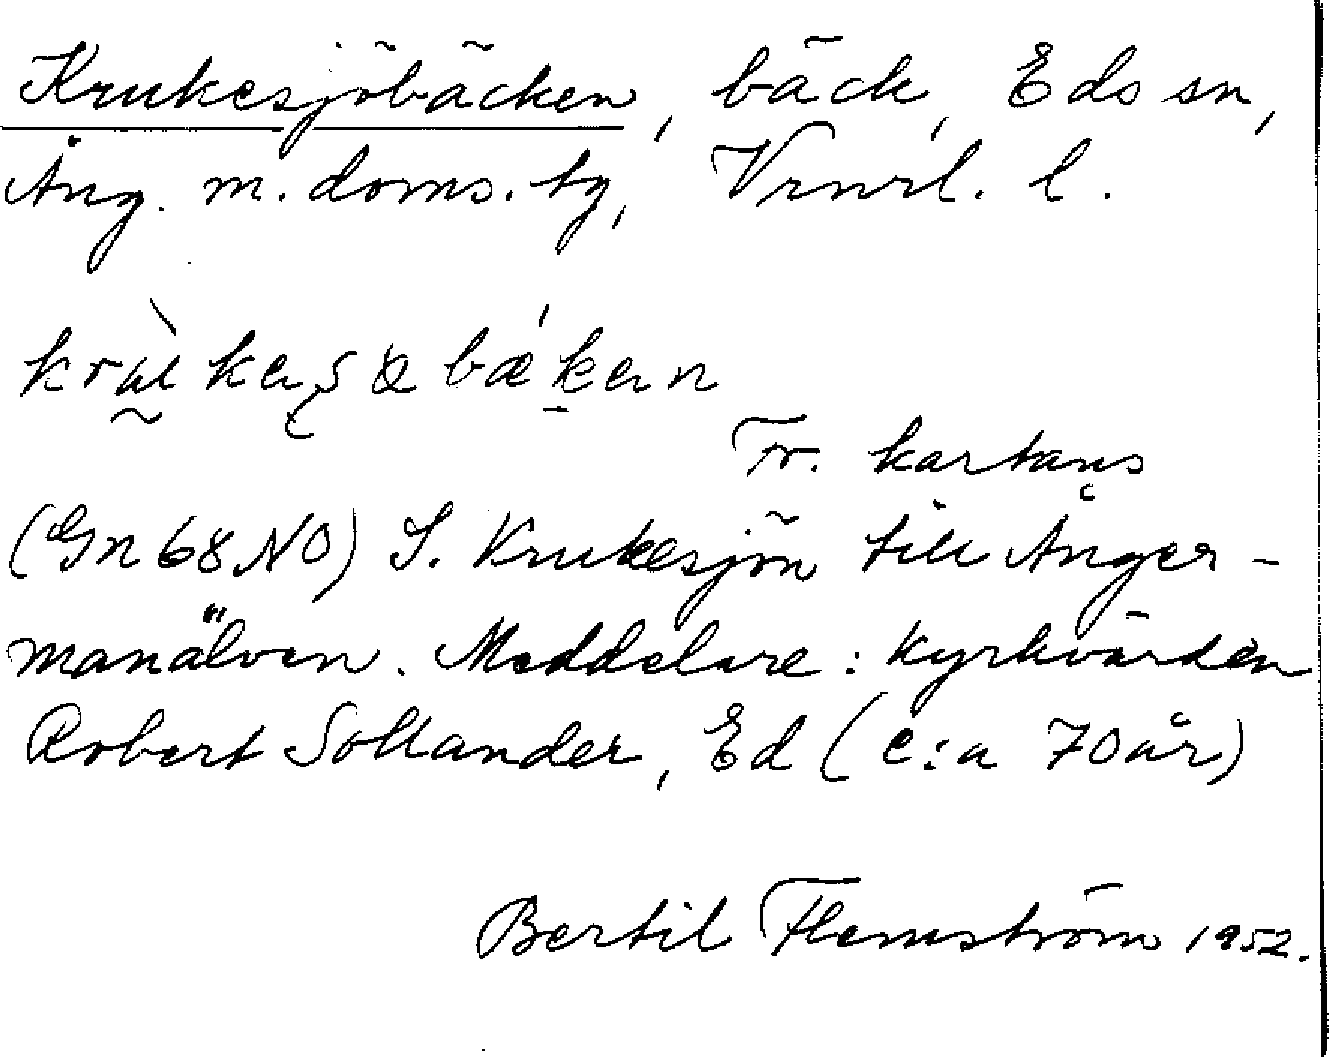 Krukesjöbäcken, bäck, Eds sn,
Ång. m. doms. tg, Vrnrl. l.
Fr. kartans
(Gn 68 NO) S. Krukesjön till Ånger-
manälven. Meddelare: Kyrkvärden
Robert Sollander, Ed (c:a 70 år)
Bertil Flemström 1952.